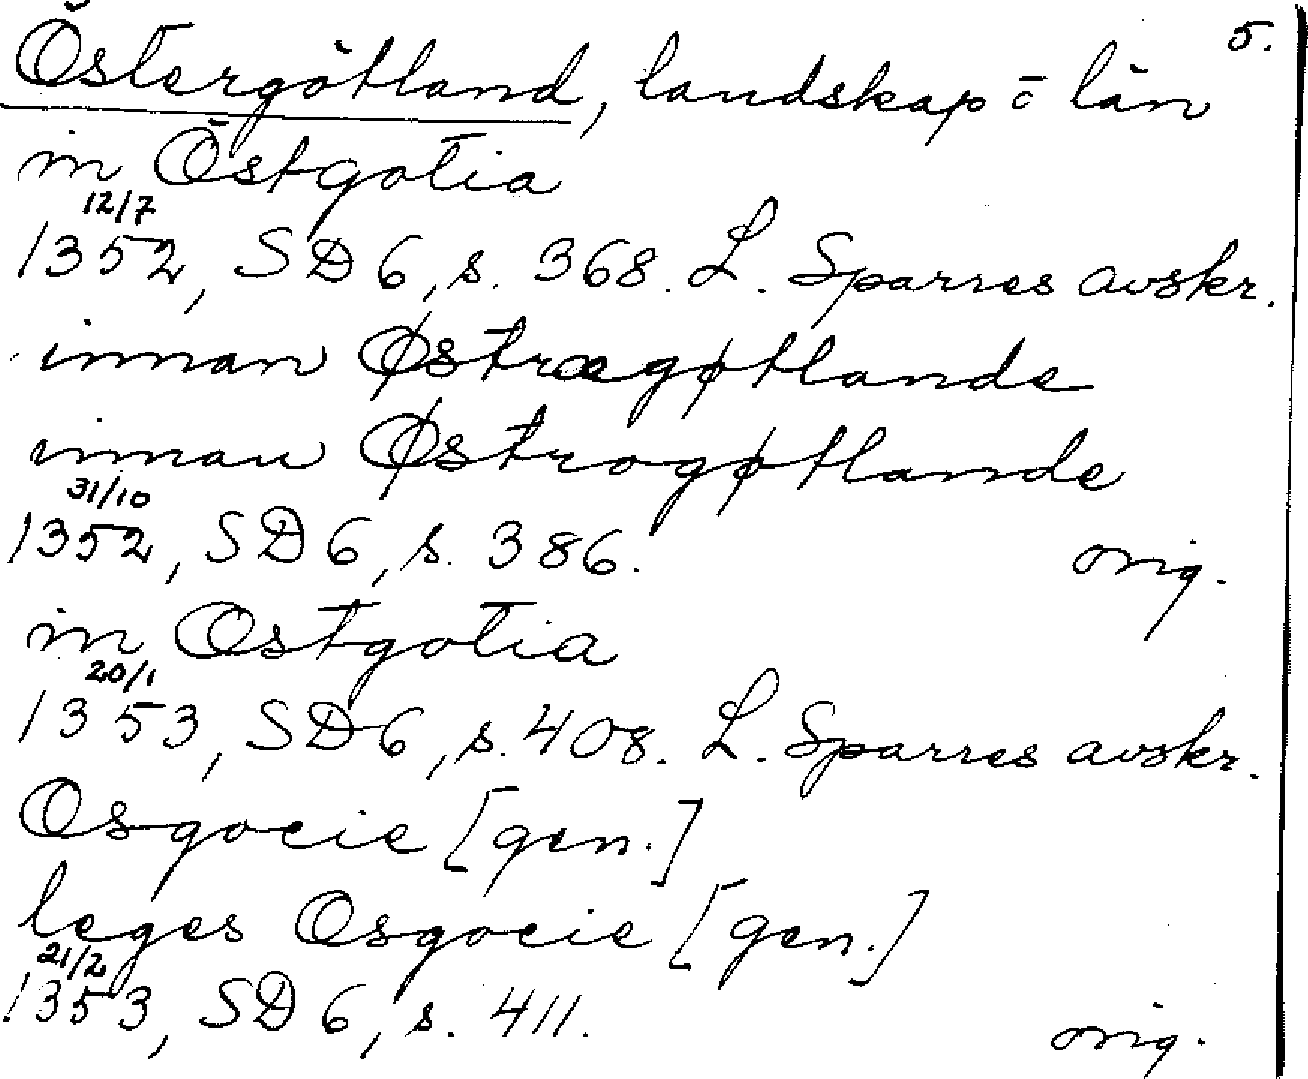 5.
Östergötland, landskap o län
in Östgotia
12/7
1352, SD 6, s. 368. L. Sparres avskr.
innan Østrægøtlande
innan Østrogøtlande
31/10
1352, SD 6, s. 386. orig.
in Ostgotia
20/1
1353, SD 6, s. 408. L. Sparres avskr.
Osgocie [gen.]
leges Osgocie [gen.]
21/2
1353, SD 6, s. 411. orig.